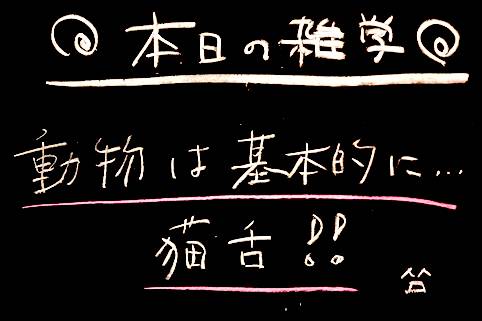 本日の雑学
動物は基本的に…
猫舌!!